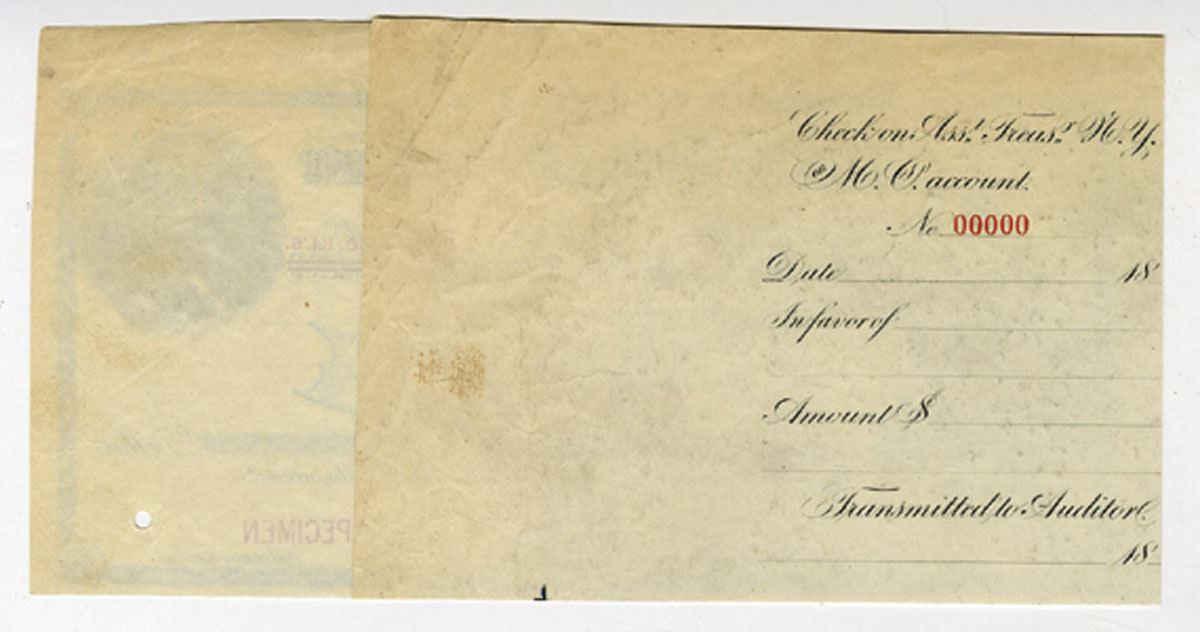 Check on Ass.t Treas.r N.Y.
M.O. account.
No 00000
Date 18
In favor of
Amount $
Transmitted to Auditor
18
SPECIMEN